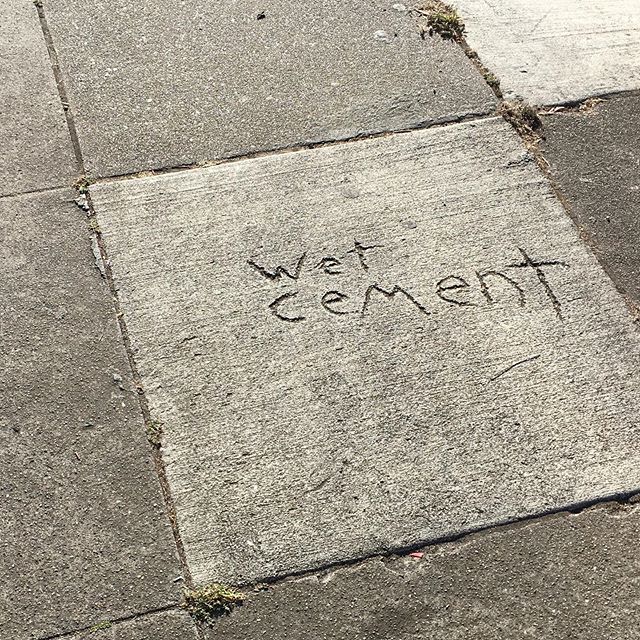 wet
cement